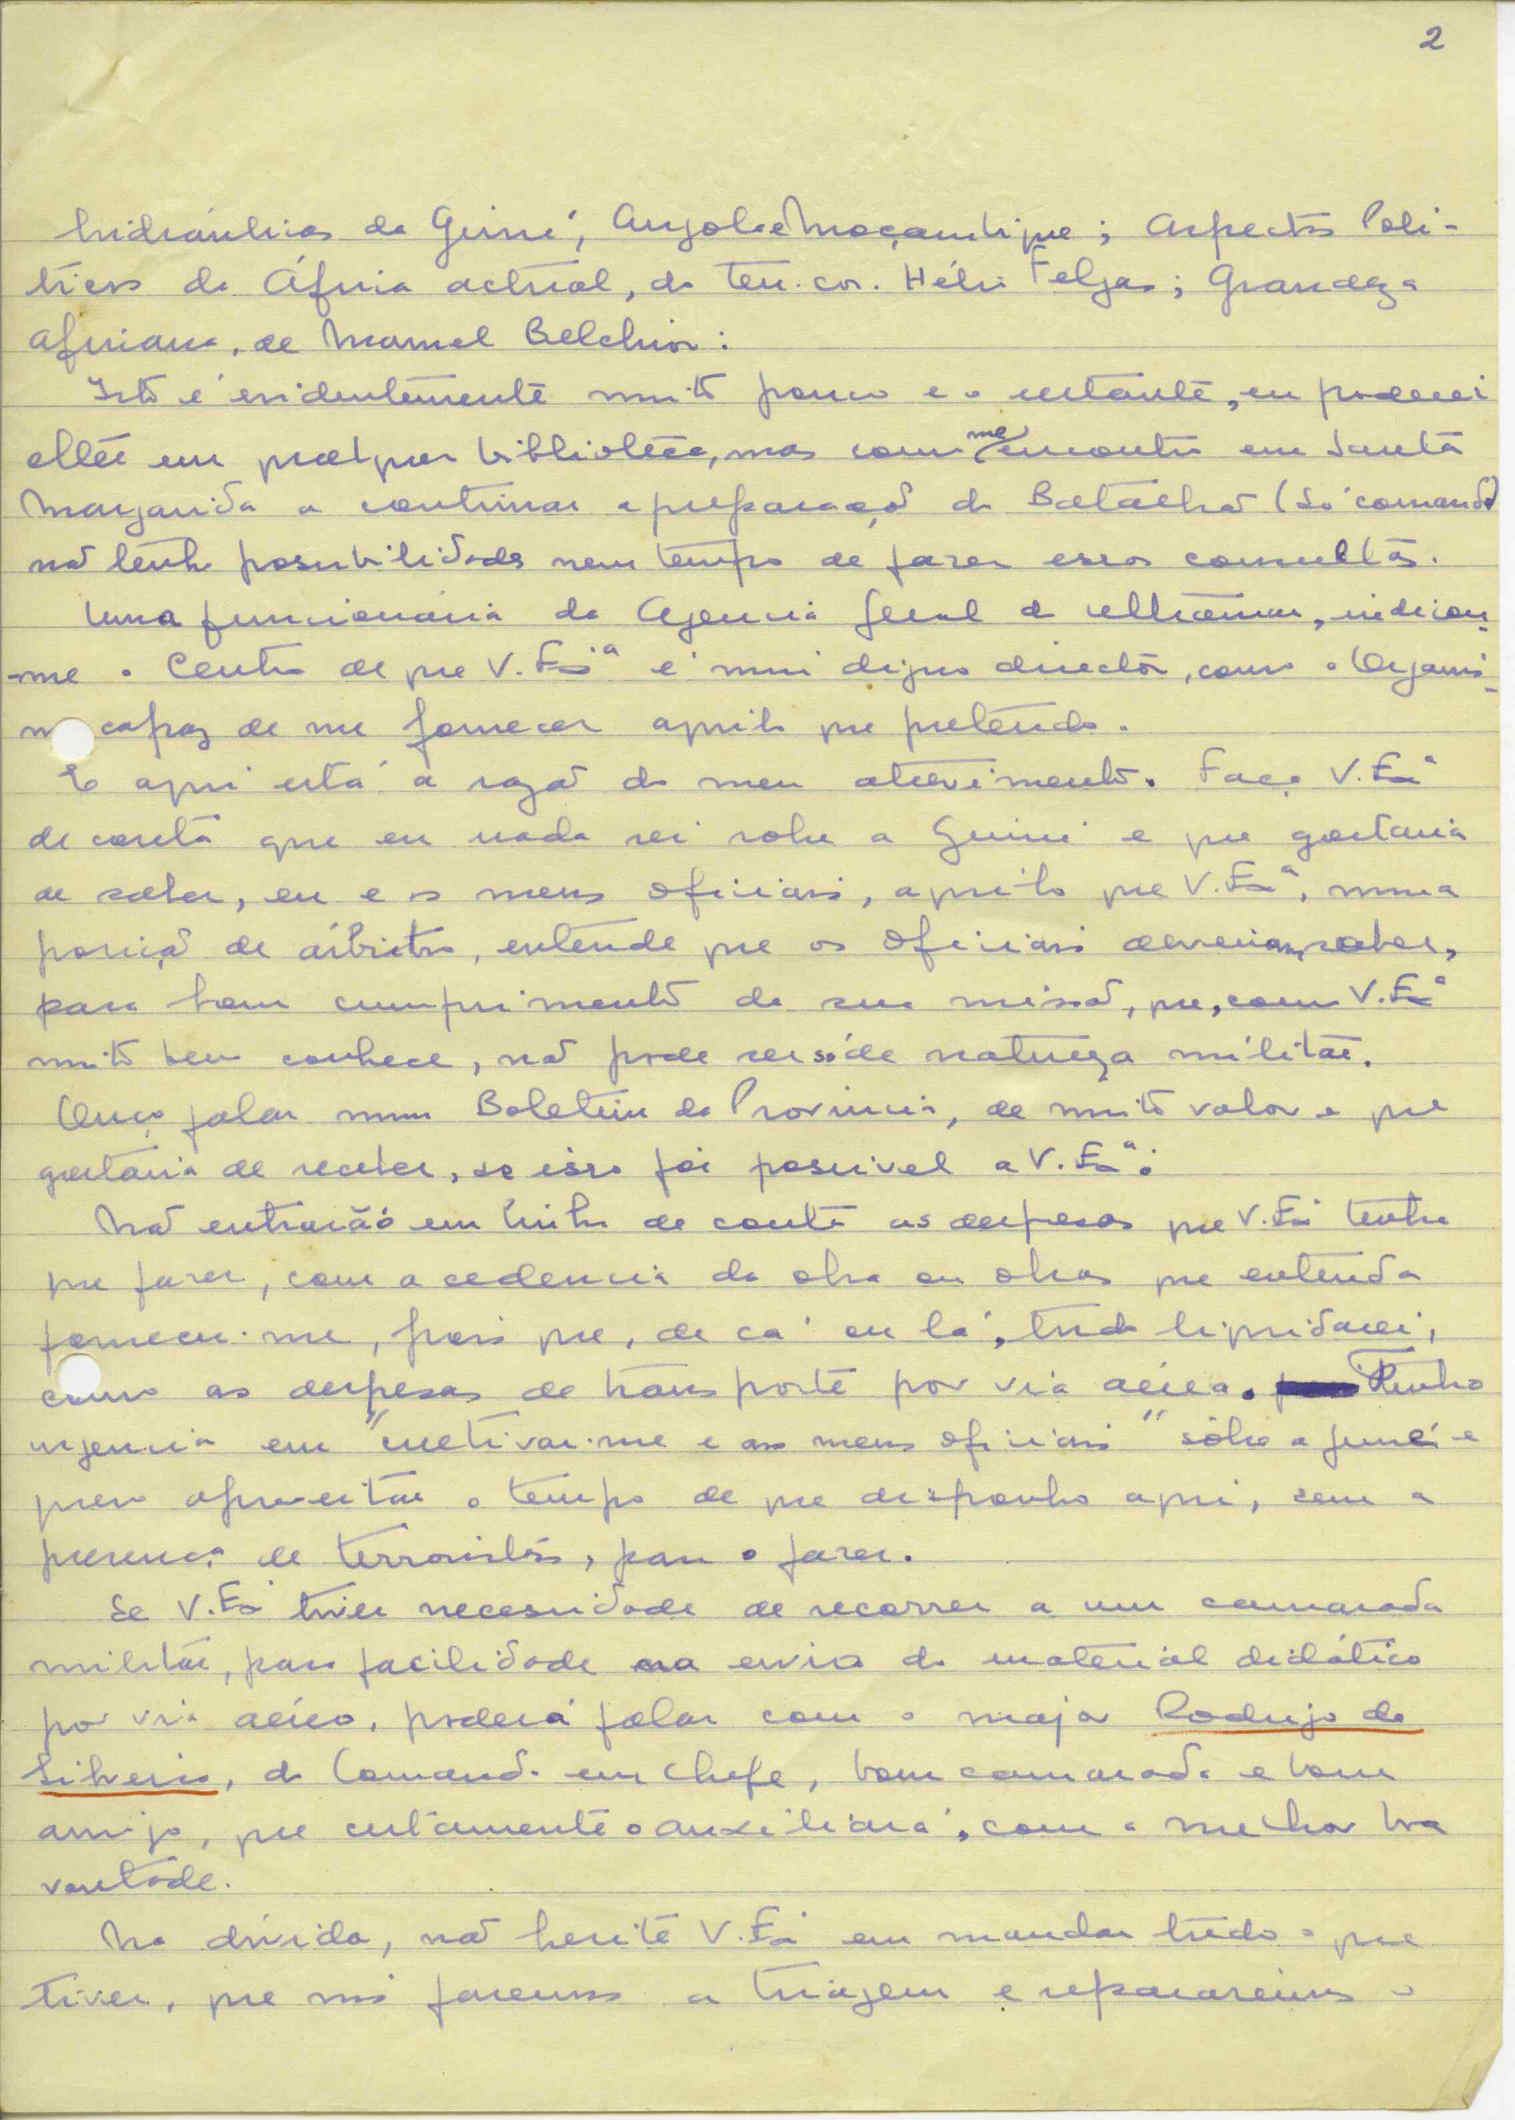 2
hidráulicos da Guiné, Angola e Moçambique; Aspectos Poli-
ticos da África actual, do ten. cor. Hélio Felgas; Grandeza
africana, de Manuel Belchior:
Isto é evidentemente muito pouco e o restante, eu poderei
obter em qualquer biblioteca, mas como me encontro em Santa
Margarida a continuar a preparação do Batalhão (Só comando)
não tenho possibilidades nem tempo de fazer essas consultas.
Uma funcionária da Agencia Geral do Ultramar, indicou-
-me o Centro de que V. Exª é mui digno director, como o Organis-
mo capaz de me fornecer aquilo que pretendo.
E aqui está a razão do meu atrevimento. Faça V. Exª
de conta que eu nada sei sobre a Guiné e que gostaria
de saber, eu e os meus oficiais, aquilo que V. Exª, numa
posição de árbitro, entende que os oficiais deveriam saber,
para bom cumprimento da sua missão, que, como V. Exª
muito bem conhece, não pode ser só de natureza militar.
Ouço falar num Boletim da Provincia, de muito valor e que
gostaria de receber, se isso for possivel a V. Exª.
Não entrarão em linha de conta as despesas que V. Exª tenha
que fazer, com a cedencia da obra ou obras que entenda
fornecer-me, pois que, de cá ou lá, tudo liquidarei,
como as despesas de transporte por via aérea. Tenho
urgencia em "cultivar-me e aos meus oficiais" sôbre a Guiné e
quero aproveitar o tempo de que disponho aqui, sem a
presença de terroristas, para o fazer.
Se V. Exª tiver necessidade de recorrer a um camarada
militar, para facilidade na envio do material didático
por via aérea, poderá falar com o major Rodrigo da
Silveira, do Comando em Chefe, bom camarada e bom
amigo, que certamente o auxiliará, com a melhor boa
vontade.
Na dúvida, não hesite V. Exª em mandar tudo o que
tiver, que nós faremos a triagem e separaremos o